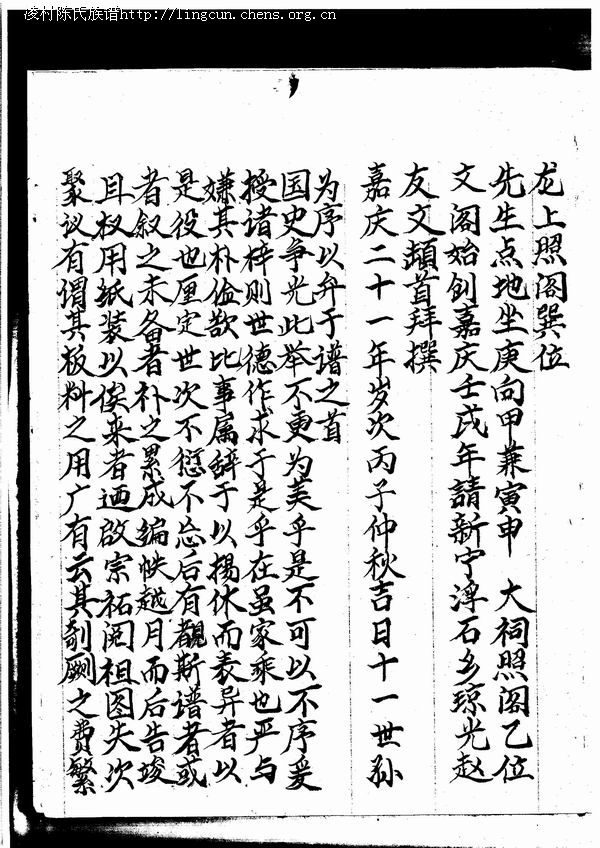 凌村陈氏族谱http://lingcun.chens.org.cn
聚议有谓其板料之用广有云其剞劂之费繁
且权用纸装以俟来者迺启宗祏阅祖图失次
者叙之未备者补之累成编帙越月而后告竣
是役也厘定世次不愆不忘后有觀斯谱者或
嫌其朴俭歉比事属辞于以揚休而表异者以
授诸梓则世德作求于是乎在虽家乘也严与
国史争光此举不更为美乎是不可以不序爰
为序以弁于谱之首
嘉庆二十一年岁次丙子仲秋吉日十一世孙
友文頓首拜撰
文阁始创嘉庆壬戌年請新宁浮石乡琼光赵
先生点地坐庚向甲兼寅申 大祠照阁乙位
龙上照阁巽位